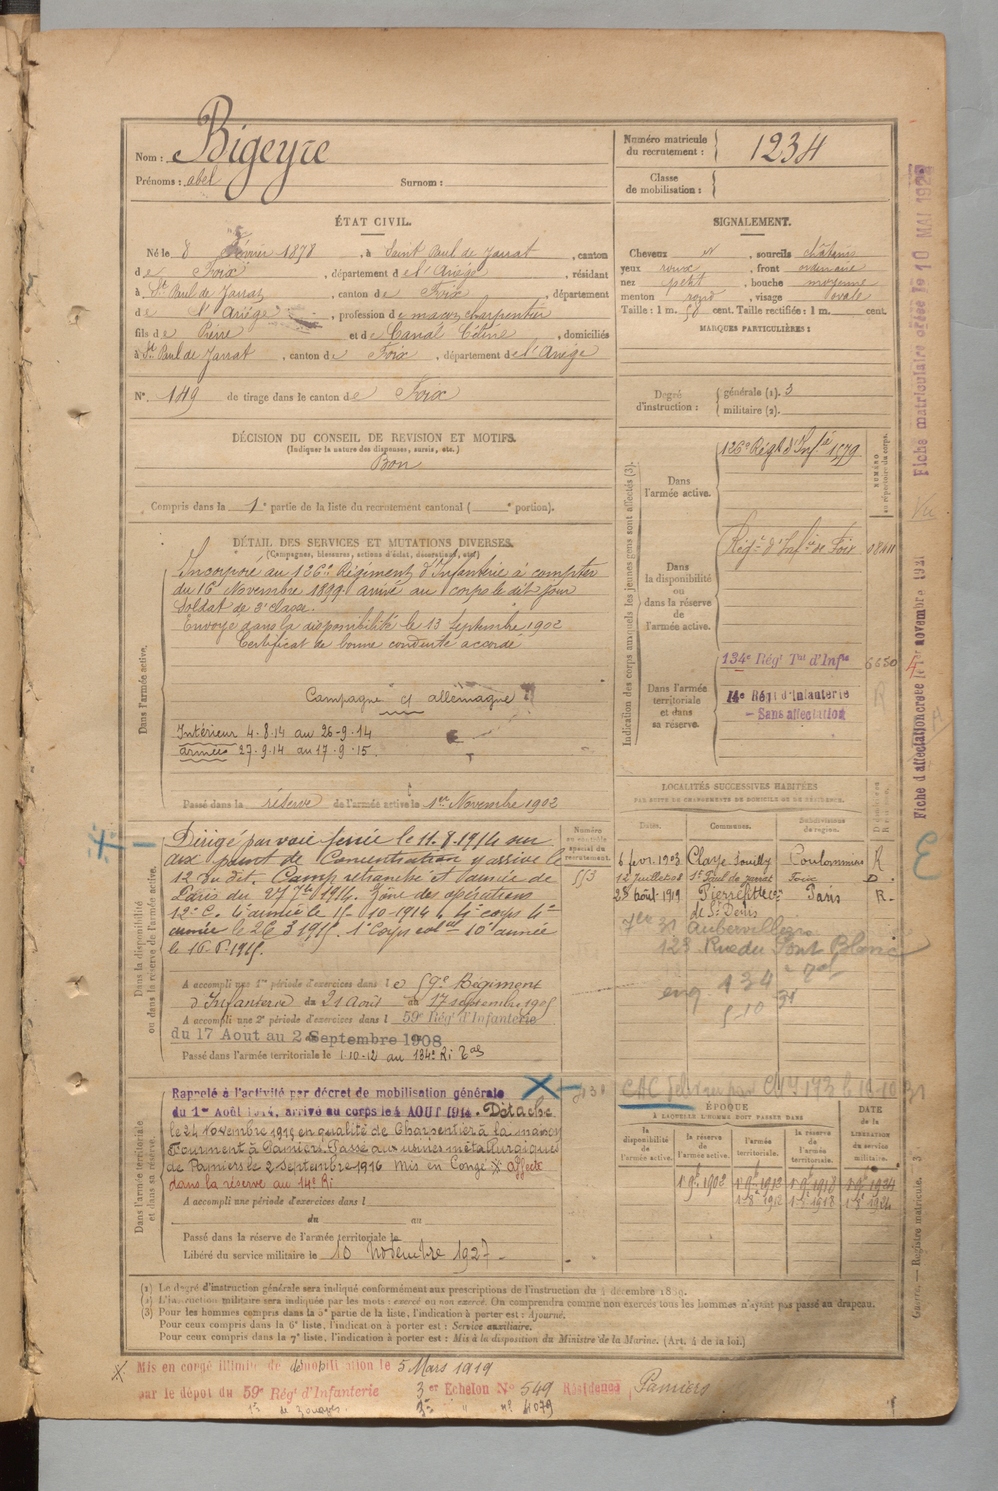 Nom : Bigeyre
Prénoms : abel Surnom :
Numéro matricule du recrutement : 1234
Classe de mobilisation :
ÉTAT CIVIL.
Né le 8 Février 1878, à Saint Paul de Jarrat, canton
de Foix, département de l'Ariège, résidant
à St Paul de Jarrat, canton de Foix, département
de l'Ariège, profession de maçon charpentier
fils de Pierre et de Canal Céline, domiciliés
à St Paul de Jarrat, canton de Foix, département de l'Ariège
N° 149 de tirage dans le canton de Foix
SIGNALEMENT.
Cheveux N, sourcils châtains
yeux roux, front ordinaire
nez petit, bouche moyenne
menton rond, visage ovale
Taille : 1 m. 58 cent. Taille rectifiée : 1 m. cent.
MARQUES PARTICULIÈRES :
Degré d'instruction : générale (1). 3
militaire (2).
DÉCISION DU CONSEIL DE REVISION ET MOTIFS.
(Indiquer la nature des dispenses, sursis, etc.)
Bon
Compris dans la 1e partie de la liste du recrutement cantonal ( e portion).
DÉTAIL DES SERVICES ET MUTATIONS DIVERSES.
(Campagnes, blessures, actions d'éclat, décorations, etc.)
Dans l'armée active.
Incorporé au 126e Régiment d'Infanterie à compter
du 16 Novembre 1899 arrivé au corps le dit jour
Soldat de 2e classe.
Envoyé dans la disponibilité le 13 Septembre 1902
Certificat de bonne conduite accordé
Campagne c/ allemagne
Intérieur 4.8.14 au 26-9-14
armées 27.9.14 au 17.9.15.
Passé dans la réserve de l'armée active le 1er Novembre 1902
Indication des corps auxquels les jeunes gens sont affectés (3).
NUMÉRO au répertoire du corps.
Dans l'armée active.
126e Régt d'Infie 1579
Dans la disponibilité ou dans la réserve de l'armée active.
Régt d'Infie de Foix 08411
Dans l'armée territoriale et dans sa réserve.
134e Régt Tal d'Infie 6650
14e Régt d'Infanterie
- Sans affectation
Dans la disponibilité ou dans la réserve de l'armée active.
Numéro au contrôle spécial du recrutement.
553
Dirigé par voie ferrée le 11.8.1914 au
aux point de Concentration y arrive le
12 du dit. Camp retranché et l'armée de
Paris du 27 7bre 1914. Zône des opérations
12e C. 4e armée le 15-10-1914 4e corps 4e
armée le 26 3 1915. 1er Corps colal 10e armée
le 16.6.1915.
A accompli une 1re période d'exercices dans le 59e Régiment
d'Infanterie du 21 Août au 17 septembre 1905
A accompli une 2e période d'exercices dans l 59e Régt d'Infanterie
du 17 Aout au 2 Septembre 1908
Passé dans l'armée territoriale le 1-10-12 au 134e Ri Tal
LOCALITÉS SUCCESSIVES HABITÉES
PAR SUITE DE CHANGEMENTS DE DOMICILE OU DE RÉSIDENCE.
Dates. Communes. Subdivisions de région.
6 fevr. 1903 Claye-Souilly Coulommiers R
12 juillet 08 St Paul de Jarrat Foix D.
28 août 1919 Pierrefitte Paris R.
de St Denis
31 Aubervilliers
128 Rue du Pont Blanc
Dans l'armée territoriale et dans sa réserve.
Rappelé à l'activité par décret de mobilisation générale
du 1er Août 1914, arrivé au corps le 4 AOUT 1914. Détaché
le 24 Novembre 1915 en qualité de Charpentier à la maison
Fourment à Pamiers. Passé aux usines métallurgiques
de Pamiers le 2 septembre 1916 Mis en Congé X affecté
dans la réserve au 14e Ri
A accompli une période d'exercices dans l
du au
Passé dans la réserve de l'armée territoriale le
Libéré du service militaire le 10 novembre 1927
ÉPOQUE
À LAQUELLE L'HOMME DOIT PASSER DANS
la disponibilité de l'armée active. la réserve de l'armée active. l'armée territoriale. la réserve de l'armée territoriale. DATE de la LIBÉRATION du service militaire.
1 9bre 1902 1 9bre 1912 1 9bre 1918 1 9bre 1924
1-8bre 1912 1-8bre 1918 1-8bre 1924
(1) Le degré d'instruction générale sera indiqué conformément aux prescriptions de l'instruction du 4 décembre 1889.
(2) L'instruction militaire sera indiquée par les mots : exercé ou non exercé. On comprendra comme non exercés tous les hommes n'ayant pas passé au drapeau.
(3) Pour les hommes compris dans la 5e partie de la liste, l'indication à porter est : Ajourné.
Pour ceux compris dans la 6e liste, l'indication à porter est : Service auxiliaire.
Pour ceux compris dans la 7e liste, l'indication à porter est : Mis à la disposition du Ministre de la Marine. (Art. 4 de la loi.)
X Mis en congé illimité de démobilisation le 5 Mars 1919
par le dépot du 59e Régt d'Infanterie 3er Echelon N° 549 Résidence Pamiers
de Zouaves. n° 4079
Guerre. — Registre matricule. — 3
Fiche matriculaire créée le 10 MAI 1922
Vu
Fiche d'affectation créée le 1er novembre 1921